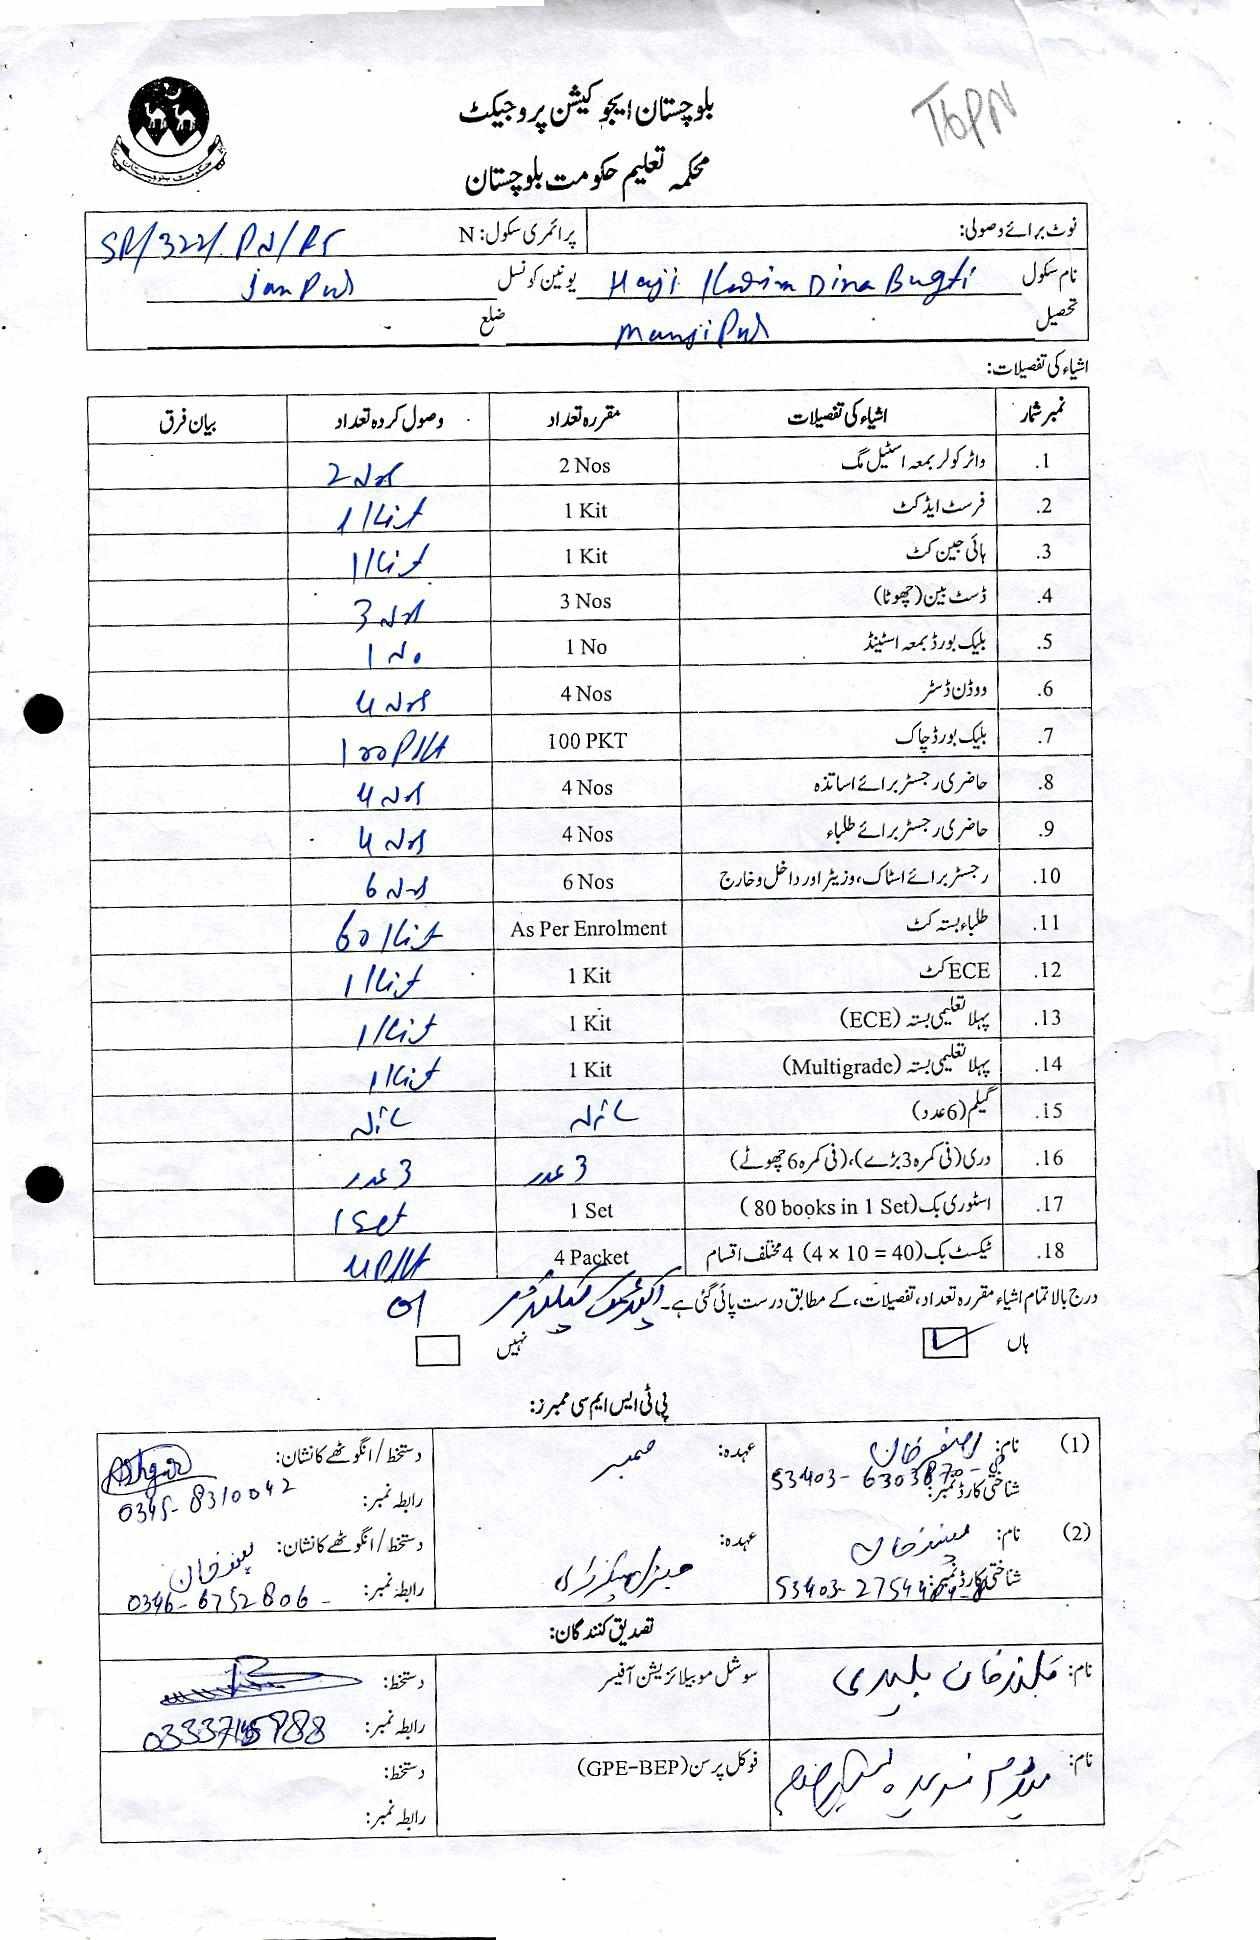 TGPN
بلوچستان ایجوکیشن پروجیکٹ
محکمہ تعلیم حکومت بلوچستان
حکومت بلوچستان
نوٹ برائے وصولی:
پرائمری سکول: N SR/322/
نام سکول Haji Karim Dina Bugti یونین کونسل
تحصیل ضلع
اشیاء کی تفصیلات:
نمبر شمار اشیاء کی تفصیلات مقررہ تعداد وصول کردہ تعداد بیان فرق
1. واٹر کولر بمعہ اسٹیل مگ 2 Nos 2 Nos
2. فرسٹ ایڈ کٹ 1 Kit 1 Kit
3. ہائی جین کٹ 1 Kit 1 Kit
4. ڈسٹ بین (چھوٹا) 3 Nos 3 Nos
5. بلیک بورڈ بمعہ اسٹینڈ 1 No 1 No
6. ووڈن ڈسٹر 4 Nos 4 Nos
7. بلیک بورڈ چاک 100 PKT 100 Pkt
8. حاضری رجسٹر برائے اساتذہ 4 Nos 4 Nos
9. حاضری رجسٹر برائے طلباء 4 Nos 4 Nos
10. رجسٹر برائے اسٹاک، وزیٹر اور داخل و خارج 6 Nos 6 Nos
11. طلباء بستہ کٹ As Per Enrolment 60 Kit
12. ECE کٹ 1 Kit 1 Kit
13. پہلا تعلیمی بستہ (ECE) 1 Kit 1 Kit
14. پہلا تعلیمی بستہ (Multigrade) 1 Kit 1 Kit
15. گیلم (6 عدد) Nil Nil
16. دری (فی کمرہ 3 بڑے)، (فی کمرہ 6 چھوٹے) 3 عدد 3 عدد
17. اسٹوری بک (80 books in 1 Set) 1 Set 1 Set
18. ٹیکسٹ بک (4 × 10 = 40) 4 مختلف اقسام 4 Packet 4 Pkt
درج بالا تمام اشیاء مقررہ تعداد، تفصیلات، کے مطابق درست پائی گئی ہے۔ 01
ہاں نہیں
پی ٹی ایس ایم سی ممبرز:
(1) نام: اصغر خان عہدہ: ممبر دستخط / انگوٹھے کا نشان: Ashgar
شناختی کارڈ نمبر: رابطہ نمبر: 0345-8310042
(2) نام: عہدہ: جنرل سیکرٹری دستخط / انگوٹھے کا نشان:
شناختی کارڈ نمبر: رابطہ نمبر: 0346-6752806
تصدیق کنندگان:
نام: سوشل موبیلائزیشن آفیسر دستخط:
رابطہ نمبر:
نام: فوکل پرسن (GPE-BEP) دستخط:
رابطہ نمبر: